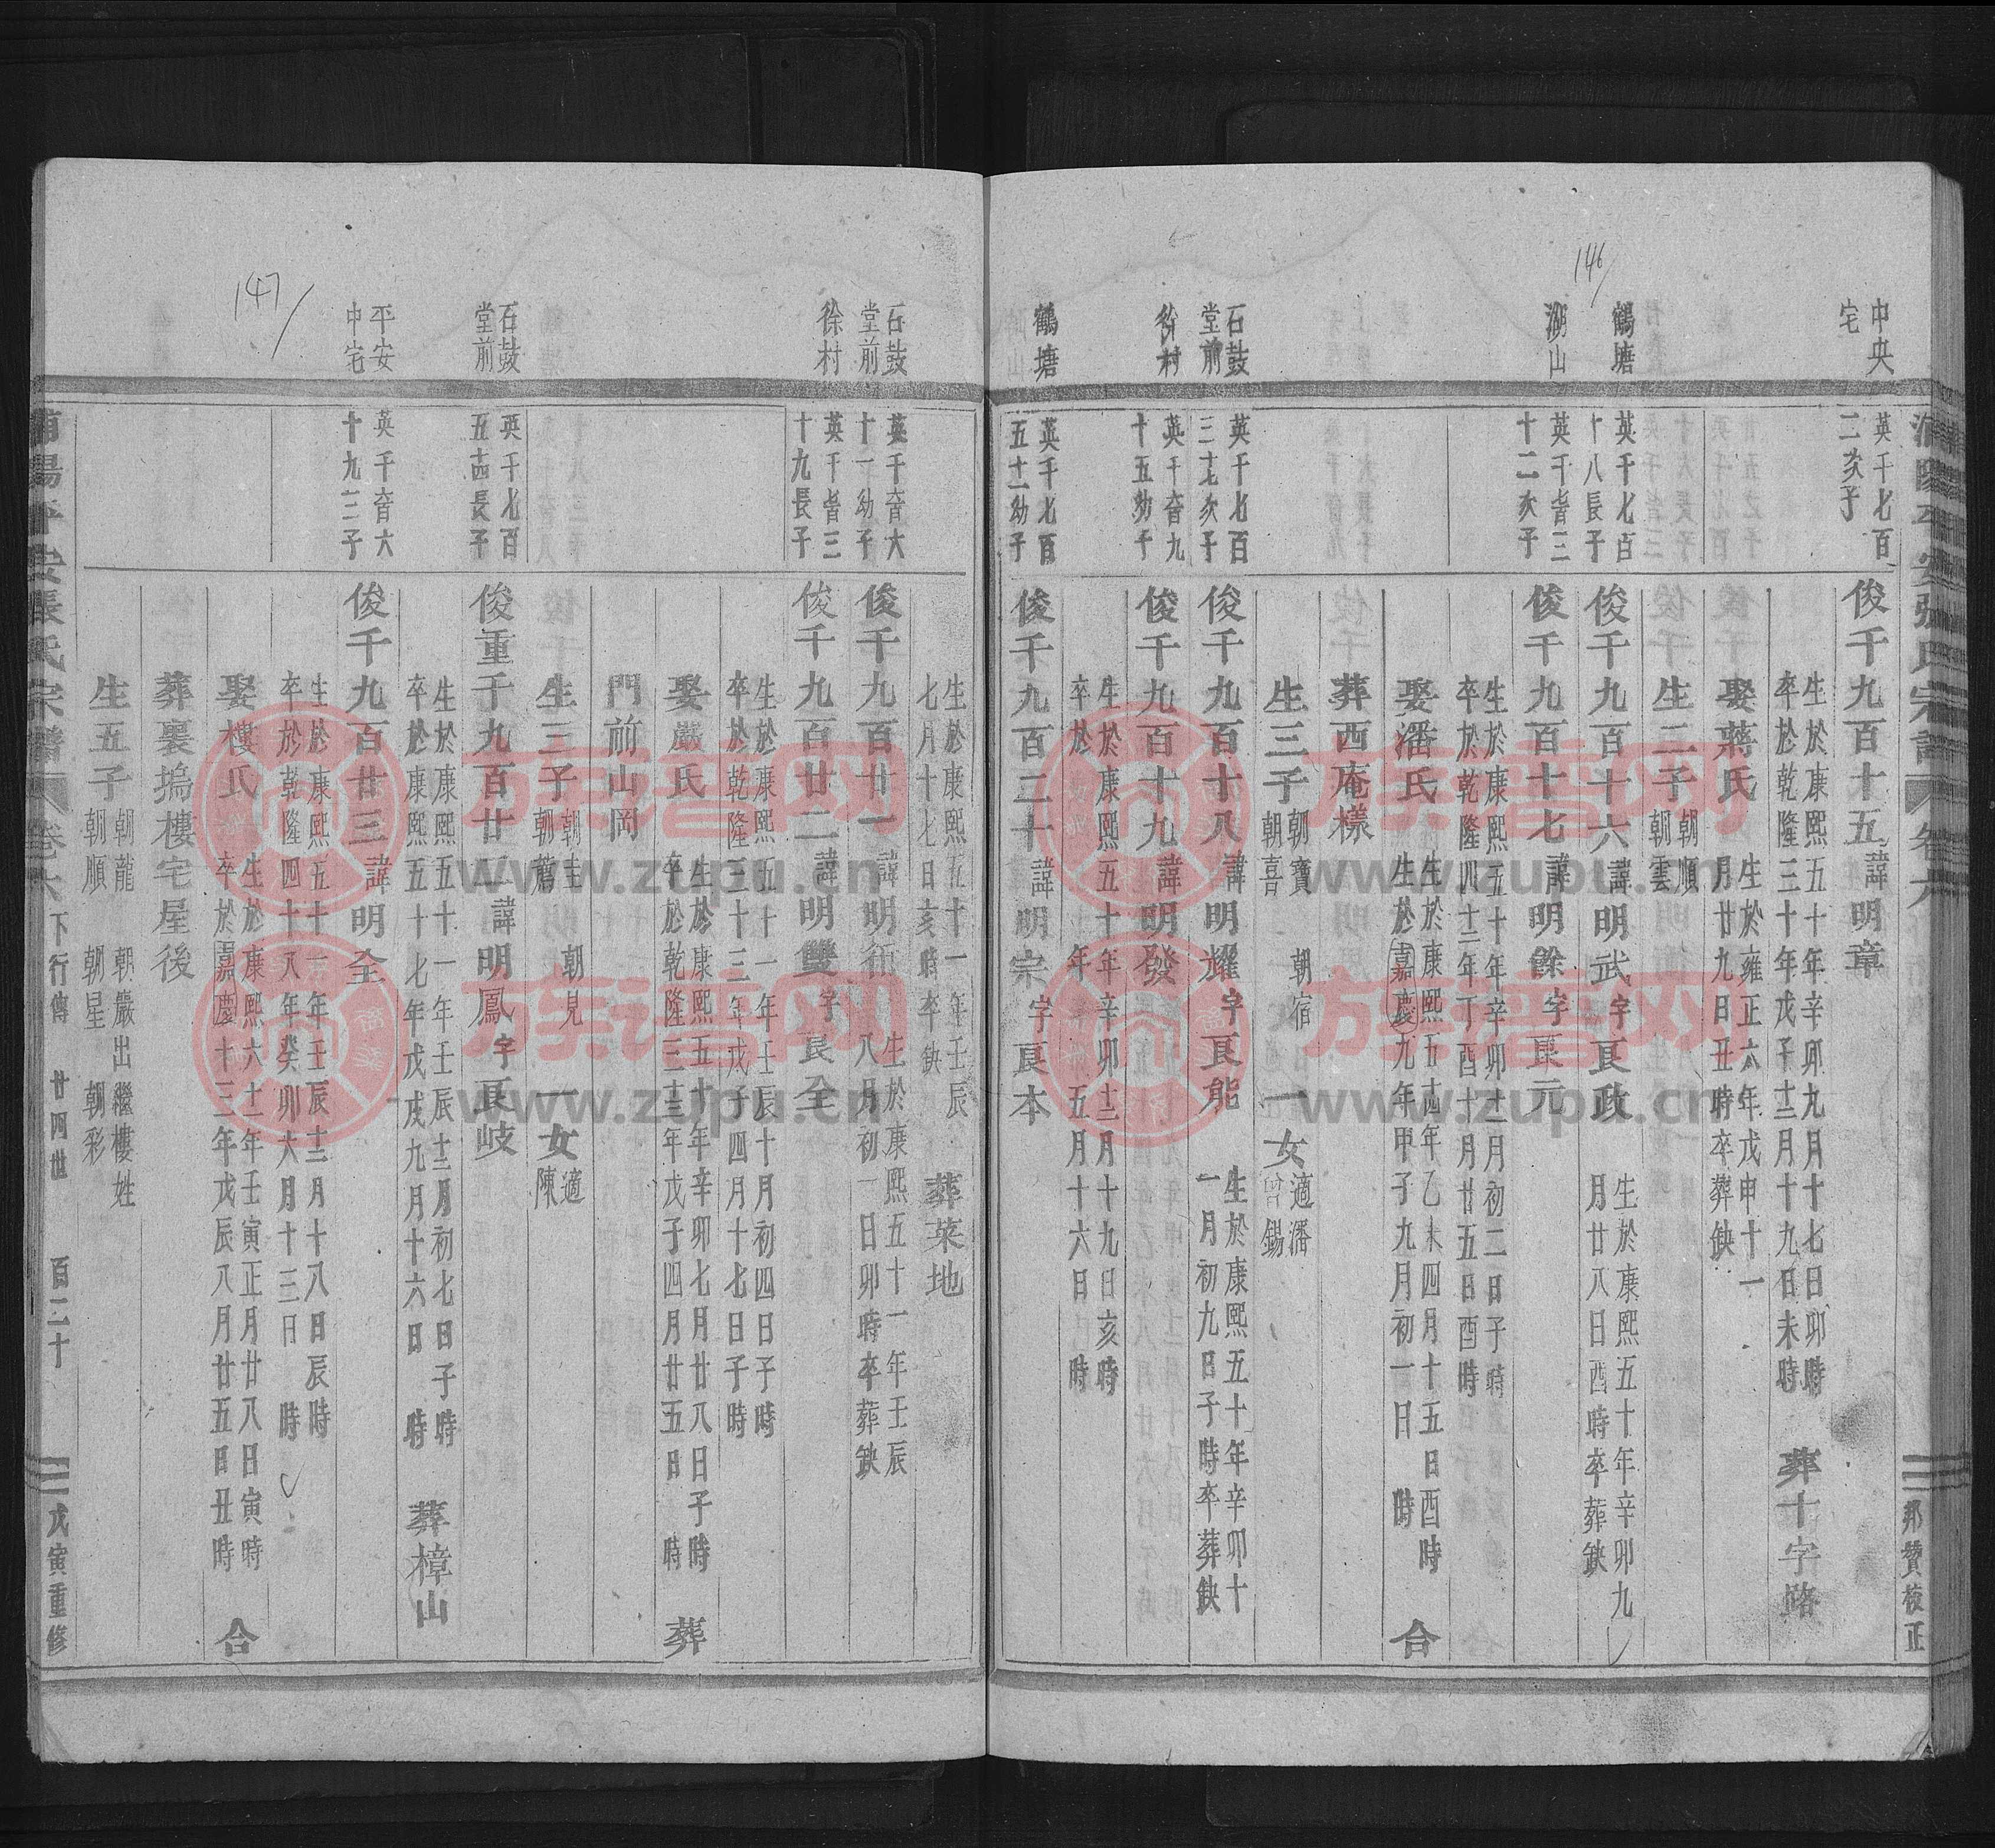 146
147
浦陽平安張氏宗譜 卷六
邦贊校正
中央宅
英千七百二次子
俊千九百十五諱明章
生於康熙五十年辛卯九月十七日卯時
卒於乾隆三十年戊子十二月十九日未時
葬十字路
娶蔣氏
生於雍正六年戊申十一
月廿九日丑時卒葬缺
生二子
朝順
朝雲
鶴塘
英千七百十八長子
俊千九百十六諱明武字良政
生於康熙五十年辛卯九
月廿八日酉時卒葬缺
湖山
英千皆三十二次子
俊千九百十七諱明餘字良元
生於康熙五十年辛卯十二月初二日子時
卒於乾隆四十二年丁酉十月廿五日酉時
娶潘氏
生於康熙五十四年乙未四月十五日酉時
生於嘉慶九年甲子九月初一日 時
合
葬西庵樣
生三子
朝寶
朝喜
朝宿
一女
適潘
曾錫
石鼓堂前
英千七百三十七次子
俊千九百十八諱明耀字良能
生於康熙五十年辛卯十
一月初九日子時卒葬缺
徐村
英千奋九十五幼子
俊千九百十九諱明發
生於康熙五十年辛卯十二月十九日亥時
卒於 年 五月十六日 時
鶴塘
英千七百五十二幼子
俊千九百二十諱明宗字良本
生於康熙五十一年壬辰
七月十七日亥時卒缺
葬菜地
石鼓堂前
英千奋六十一幼子
俊千九百廿一諱明
生於康熙五十一年壬辰
八月初一日卯時卒葬缺
徐村
英千皆三十九長子
俊千九百廿二諱明雙字良全
生於康熙五十一年壬辰十月初四日子時
卒於乾隆三十三年戊子四月十七日子時
娶嚴氏
生於康熙五十年辛卯七月廿八日子時
卒於乾隆三十三年戊子四月廿五日 時
葬
門前山岡
生三子
朝主
朝薦
朝見
一女
適
陳
石鼓堂前
英千七百五十四長子
俊重千九百廿二諱明鳳字良岐
生於康熙五十一年壬辰十二月初七日子時
卒於康熙五十七年戊戌九月十六日 時
葬樟山
平安中宅
英千奋六十九三子
俊千九百廿三諱明全
生於康熙五十一年壬辰十二月十八日辰時
卒於乾隆四十八年癸卯六月十三日 時
娶樓氏
生於康熙六十一年壬寅正月廿八日寅時
卒於嘉慶十三年戊辰八月廿五日丑時
合
葬裏塢樓宅屋後
生五子
朝龍
朝順
朝巖出繼樓姓
朝星
朝彩
浦陽平安張氏宗譜 卷六 下行傳 廿四世 百二十 戊寅重修
族譜网
www.zupu.cn
族譜网
www.zupu.cn
族譜网
www.zupu.cn
族譜网
www.zupu.cn